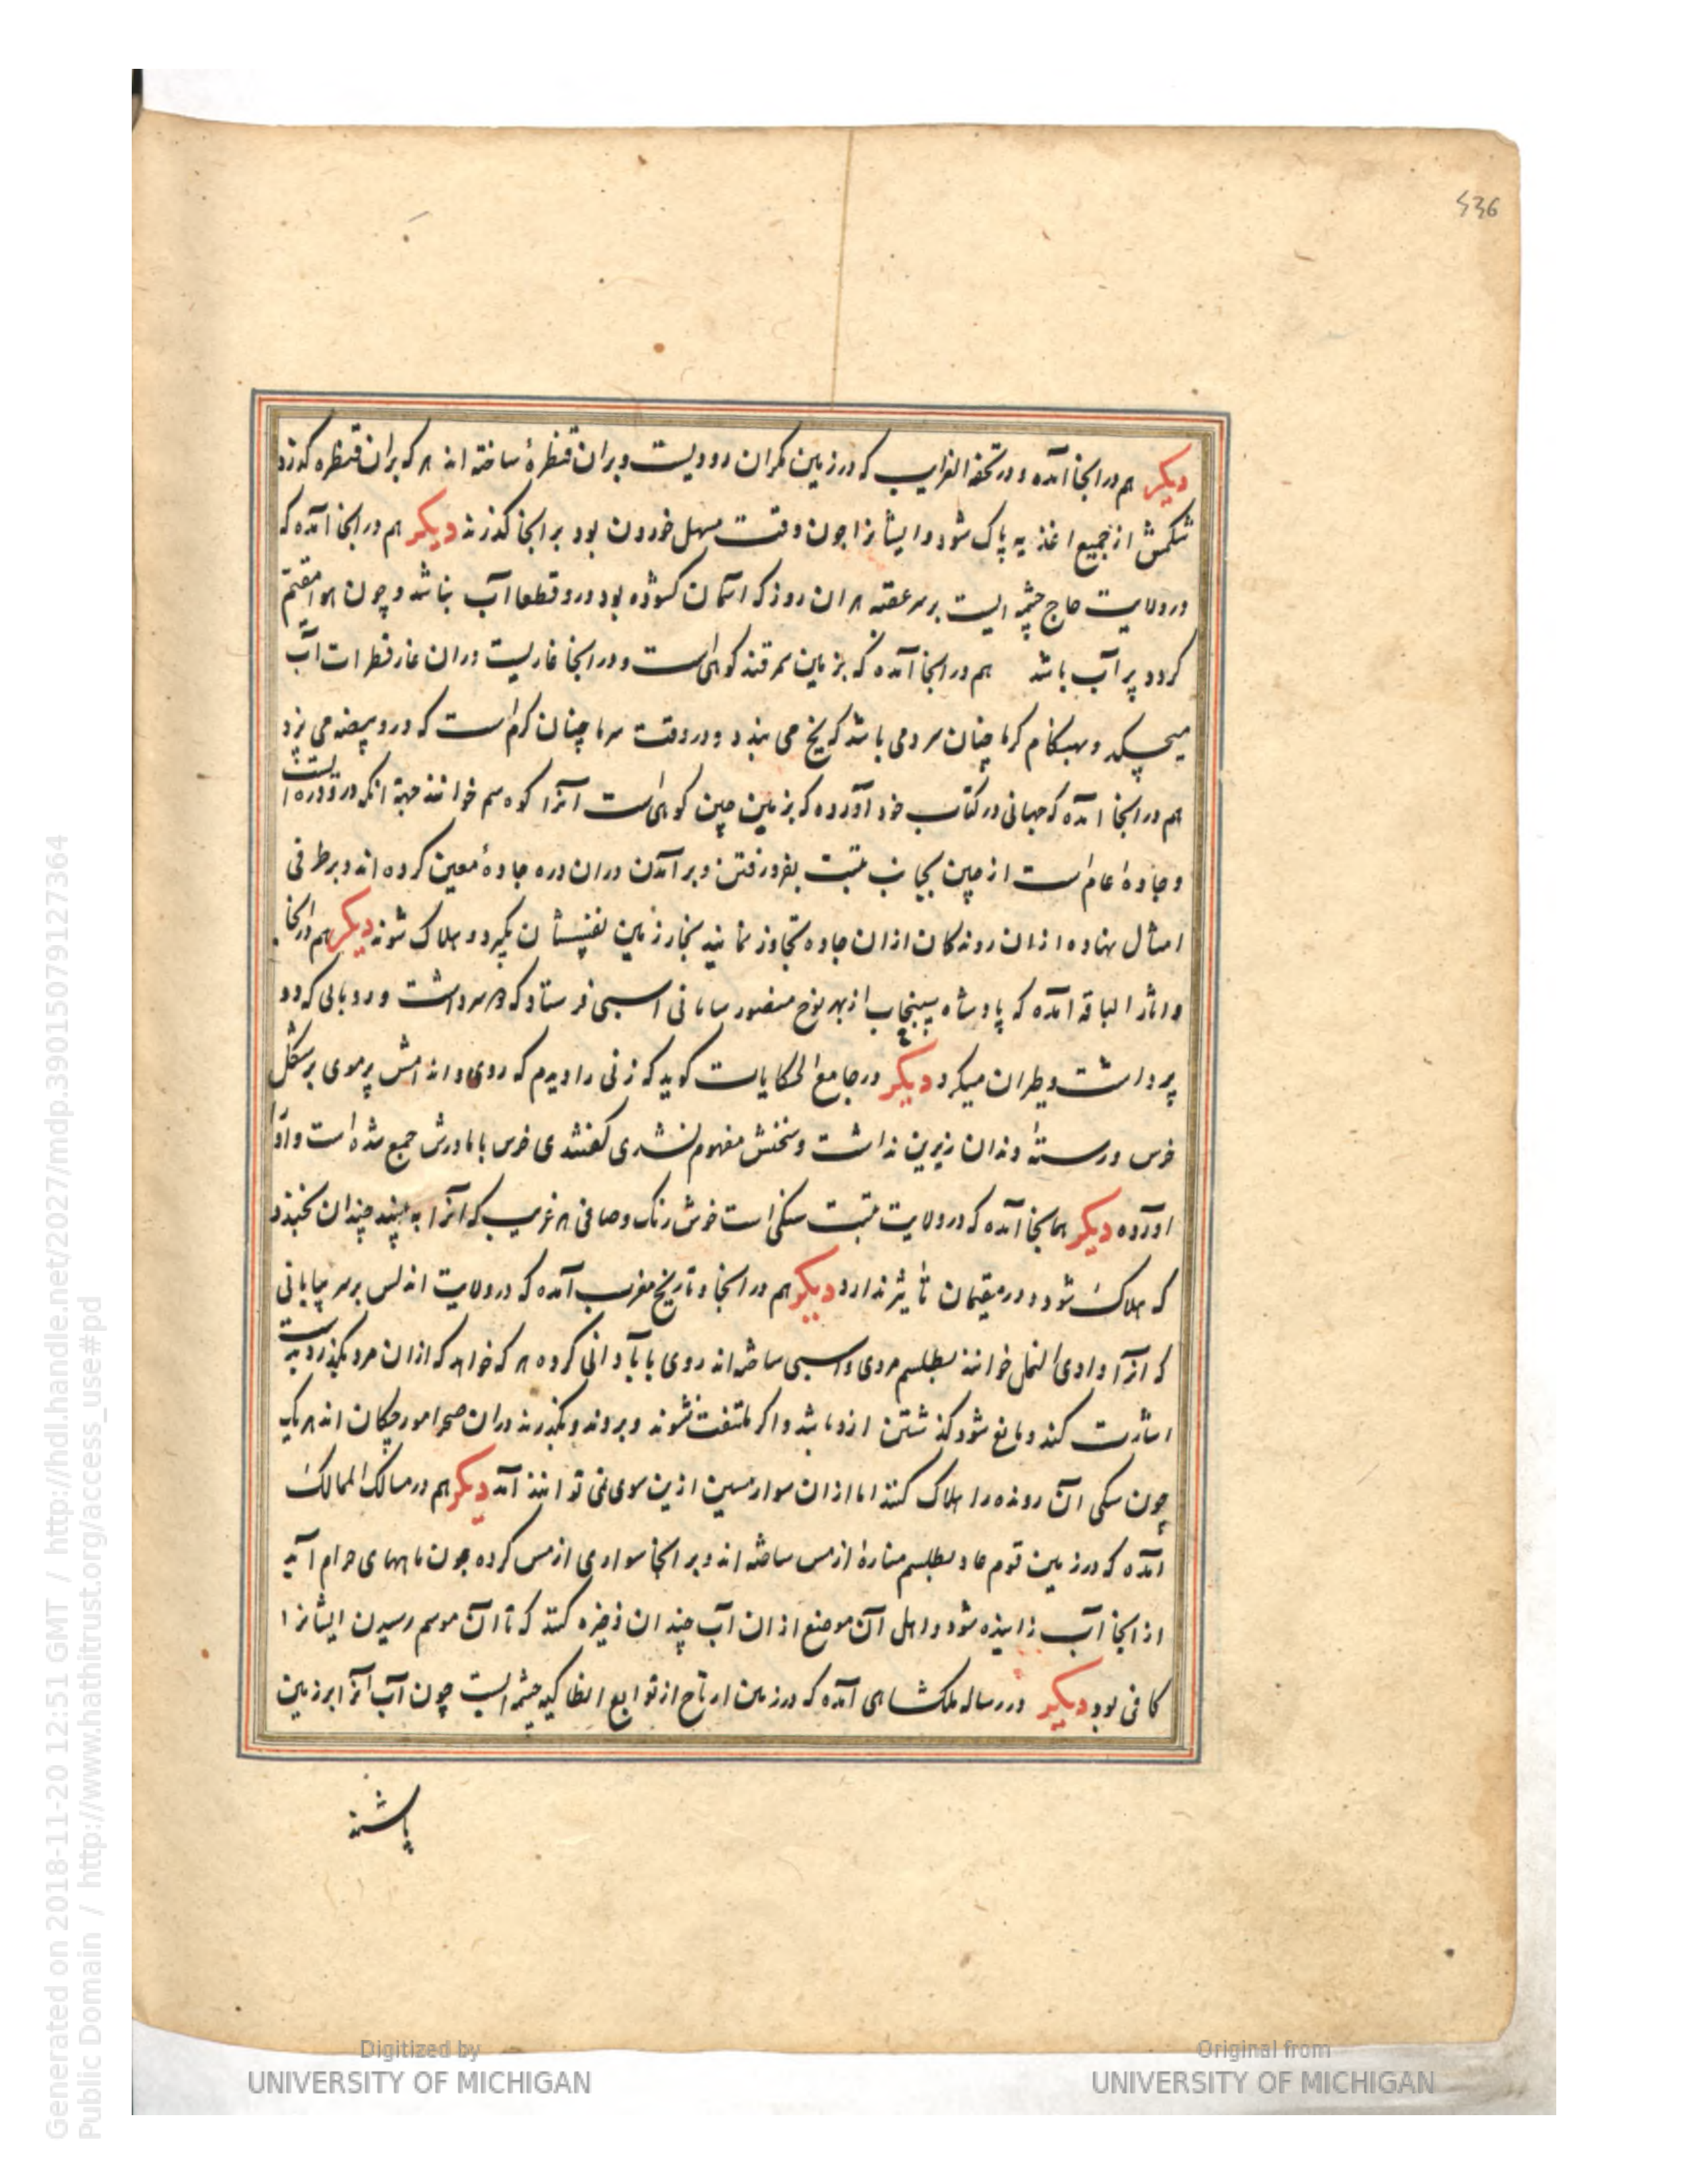 536
دیکر هم در انجا آمده و در تحفه الغرایب که در زمین مکران رودیست و بران قنطرهٔ ساخته اند هر که بران قنطره کذرد
شکمش از جمیع اغذیه پاک شود و ایشانرا چون وقت مسهل خوردن بود بر انجا کذرند دیکر هم در انجا آمده که
در ولایت حاج چشمه ایست بر سر عقبه هران روز که اسمان کشوده بود درو قطعا آب نباشد و چون هوا مقیم
کردد پر آب باشد هم در انجا آمده که بزمین سمرقند کوهی است و در انجا غاریست دران غار قطرات آب
میچکد و بهنکام کرما چنان سرد می باشد که یخ می بندد و در وقت سرما چنان کرم است که درو بیضه می پزد
هم در انجا امده که جهانی در کتاب خود آورده که بزمین چین کوهی است آنرا کوه سم خوانند جهة انکه درو دره ایست
و جادهٔ عام است از چین بجانب تبت بفرو رفتن و بر آمدن دران دره جادهٔ معین کرده اند و بر طرفی
امثال نهاده ازان روندکان ازان جاده تجاوز نمایند بخار زمین نفسشان بکیرد و هلاک شوند دیکر هم در انجا
و اثار الباقه امده که پادشاه سپنجاب از بهر نوح منصور سامانی اسبی فرستاد که دو سر داشت و روباهی که دو
پر داشت و طیران میکرد دیکر در جامع الحکایات کوید که زنی را دیدم که روی و اندامش پر موی بر شکل
خرس و رستهٔ دندان زیرین نداشت و سخنش مفهوم نشدی کفتندی خرس با مادرش جمع شده است و اورا
اورده دیکر همانجا آمده که در ولایت تبت سنکی است خوش رنک و صافی هر غریب که آنرا به بیند چندان بخندد
که هلاک شود و در مقیمان تأثیر ندارد دیکر هم در انجا و تاریخ مغرب آمده که در ولایت اندلس بر سر بیابانی
که انرا وادی النمل خوانند بطلسم مردی و اسبی ساخته اند روی با آبادانی کرده هر که خواهد که ازان مرد بکذرد بدست
اشارت کند و مانع شود کذشتن ازو باشد و اکر ملتفت نشوند و بروند و بکذرند دران صحرا مورچکان اند هر یک
چون سکی آن رونده را هلاک کنند اما ازان سوار مسین ازین سوی نمی توانند آمد دیکر هم در مسالک الممالک
آمده که در زمین قوم عاد بطلسم منارهٔ از مس ساخته اند و بر انجا سواری از مس کرده چون ماههای حرام آید
از انجا آب زاینده شود و اهل آن موضع ازان آب چندان ذخیره کنند که تا آن موسم رسیدن ایشانرا
کافی بود دیکر در رساله ملکشاهی آمده که در زمین ارتاح از توابع انطاکیه چشمه ایست چون آب آنرا بر زمین
پاشند
Digitized by
UNIVERSITY OF MICHIGAN
Original from
UNIVERSITY OF MICHIGAN
Generated on 2018-11-20 12:51 GMT / http://hdl.handle.net/2027/mdp.39015079127364
Public Domain / http://www.hathitrust.org/access_use#pd